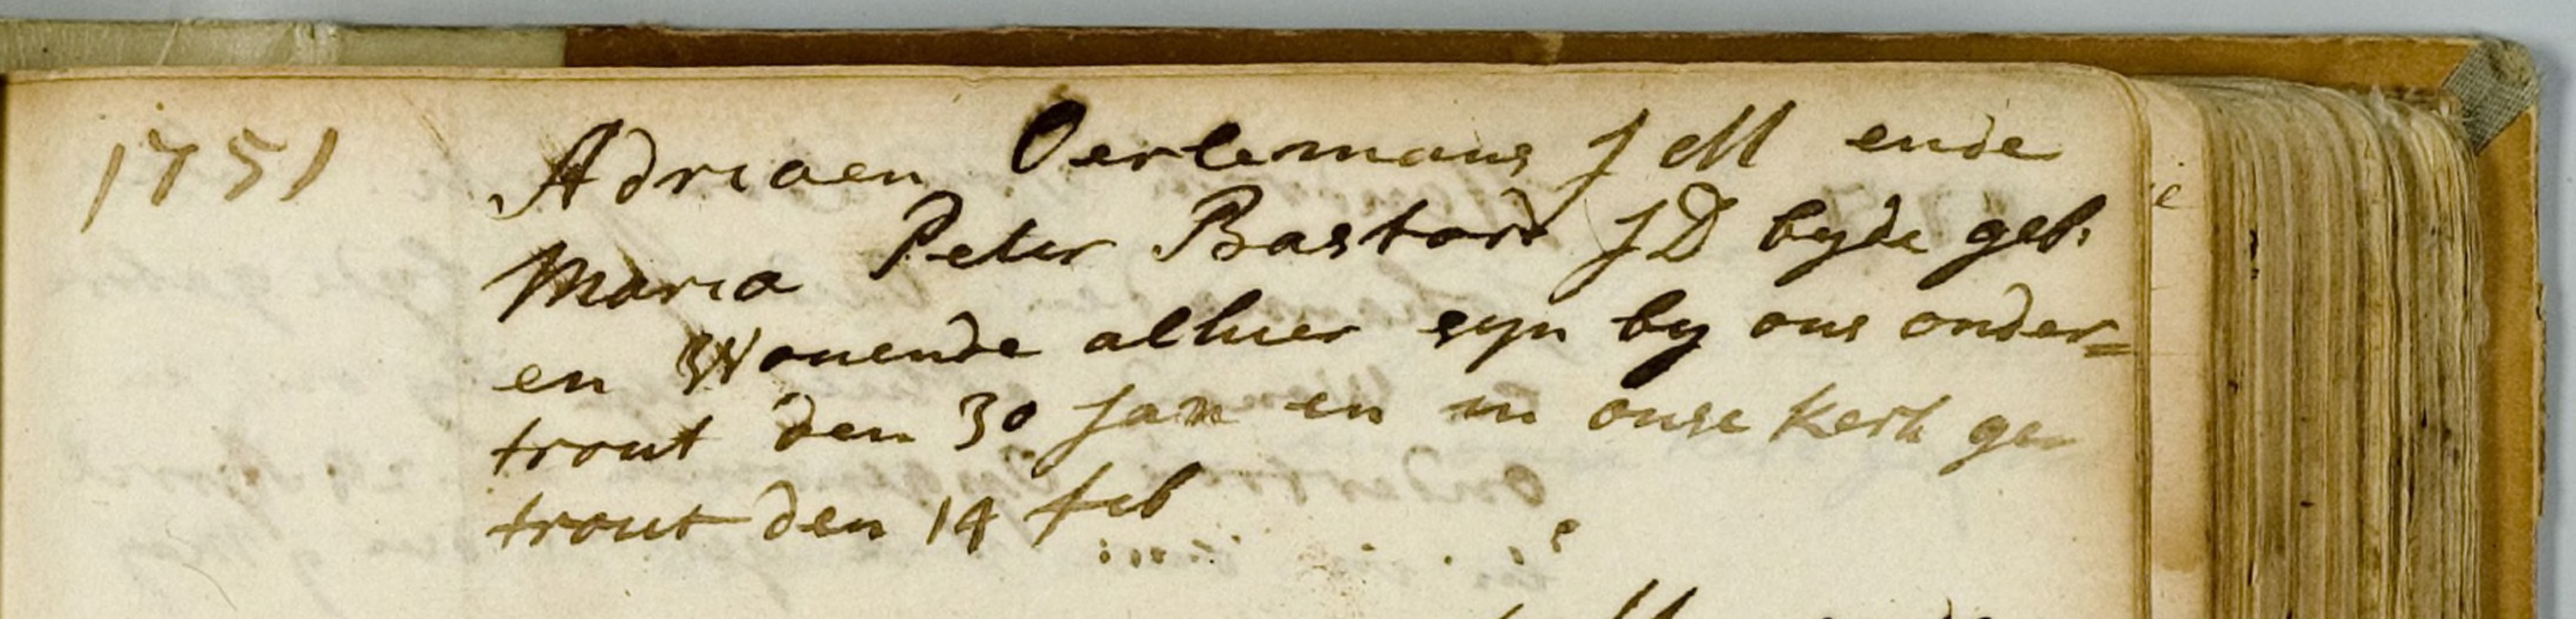 1751
Adriaen Oerlemans J M ende
Maria Peter Bastord J D byde geb:
en Wonende alhier syn by ons onder=
trout den 30 Jan en in onse kerk ge
trout den 14 feb